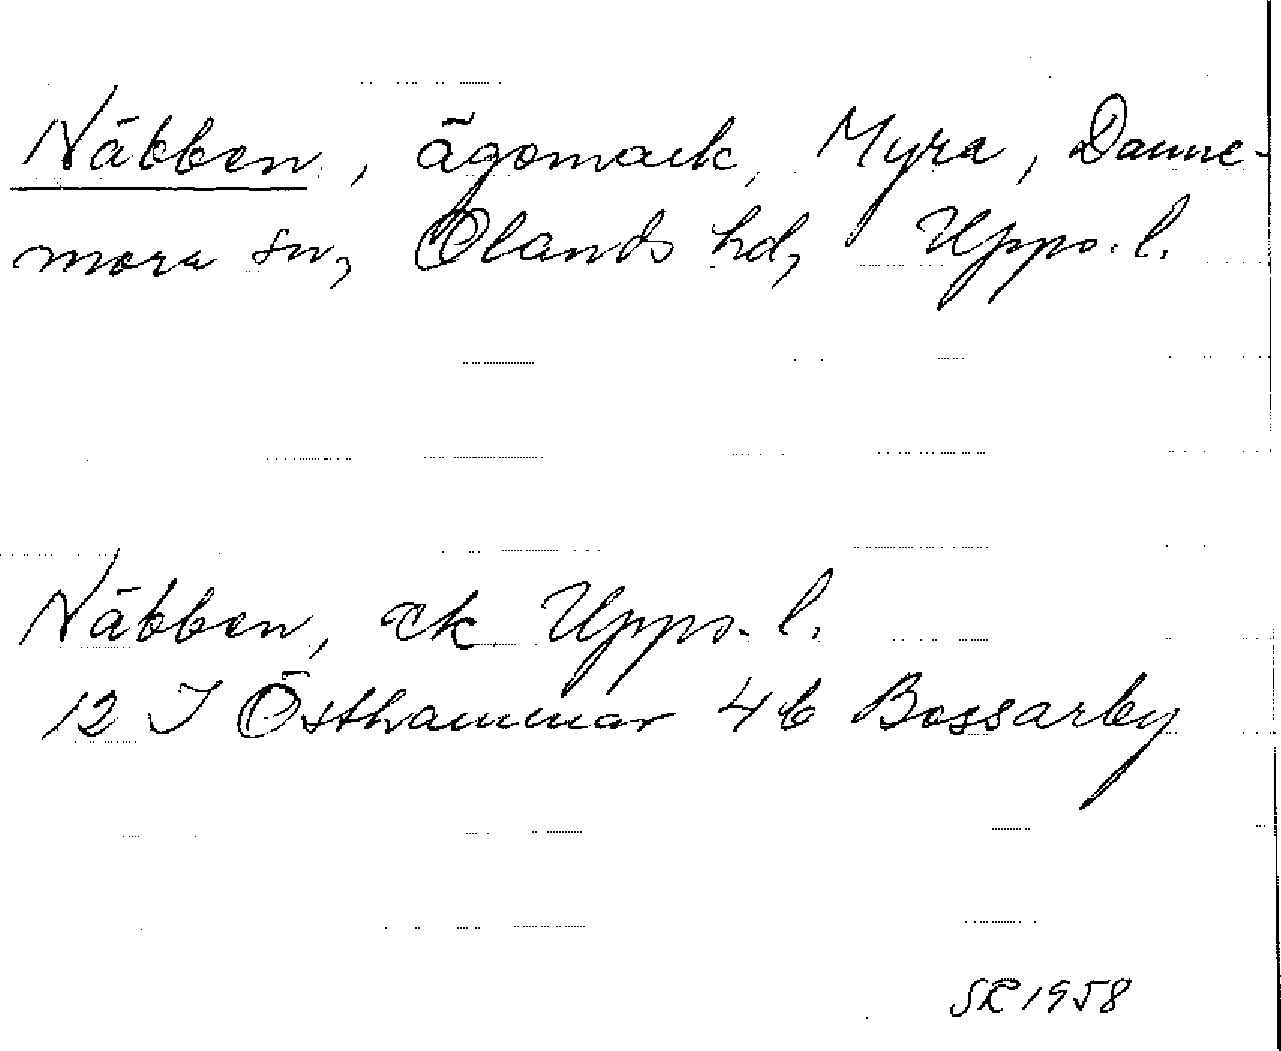 Näbben, ägomark, Myra, Danne-
mora sn, Olands hd, Upps. l.
Näbben, ek. Upps. l.
12 I Östhammar 4b Bossarby
SR 1958